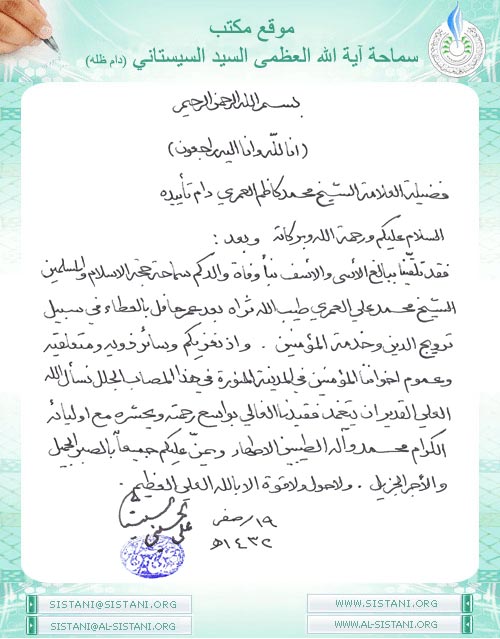 موقع مكتب
سماحة آية الله العظمى السيد السيستاني (دام ظله)
بسم الله الرحمن الرحيم
(انا لله وانا اليه راجعون)
فضيلة العلامة الشيخ محمد كاظم العمري دام تأييده
السلام عليكم ورحمة الله وبركاته وبعد :
فقد تلقينا ببالغ الأسى والأسف نبأ وفاة والدكم سماحة حجة الاسلام والمسلمين
الشيخ محمد علي العمري طيب الله ثراه بعد عمر حافل بالعطاء في سبيل
ترويج الدين وخدمة المؤمنين . واذ نعزيكم وسائر ذويه ومتعلقيه
وعموم اخواننا المؤمنين في المدينة المنورة في هذا المصاب الجلل نسأل الله
العلي القدير ان يتغمد فقيدنا الغالي بواسع رحمته ويحشره مع اوليائه
الكرام محمد وآله الطيبين الاطهار ويمنّ عليكم جميعاً بالصبر الجميل
والأجر الجزيل . ولاحول ولاقوة الا بالله العلي العظيم .
١٩/صفر
١٤٣٢هـ
علي الحسيني السيستاني
SISTANI@SISTANI.ORG
WWW.SISTANI.ORG
SISTANI@AL-SISTANI.ORG
WWW.AL-SISTANI.ORG